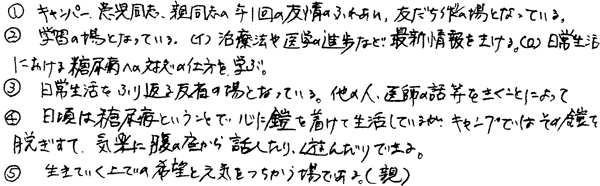 ① キャンペー、患児同志、親同志の年1回の友情のふれあい、友だち作りの場となっている。
② 学習の場となっている。(イ)治療法や医学の進歩など、最新情報をきける。(ロ)日常生活
における糖尿病への対応の仕方を学ぶ。
③ 日常生活をふり返る反省の場となっている。他の人、医師の話等をきくことによって
④ 日頃は糖尿病ということで心に鎧を着けて生活しているが、キャンプではその鎧を
脱ぎすて、気楽に腹の底から話したり、遊んだりできる。
⑤ 生きていく上での希望と元気をつちかう場である。(親)